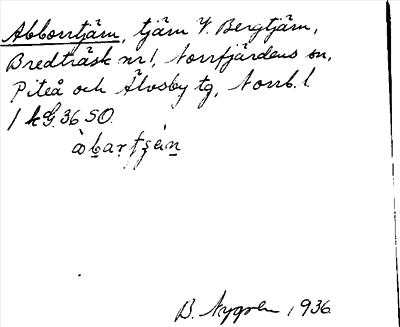 Abborrtjärn, tjärn V. Bergtjärn,
Bredträsk nr 1, Norrfjärdens sn,
Piteå och Älvsby tg, Norrb. l.
1 kG. 36 SO.
B. Nygren 1936